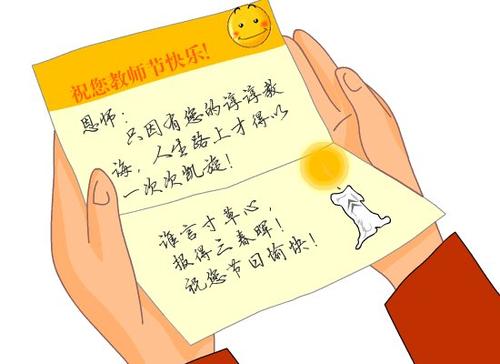 祝您教师节快乐!
恩师:
只因有您的谆谆教
诲,人生路上才得以
一次次凯旋!
谁言寸草心,
报得三春晖!
祝您节日愉快!